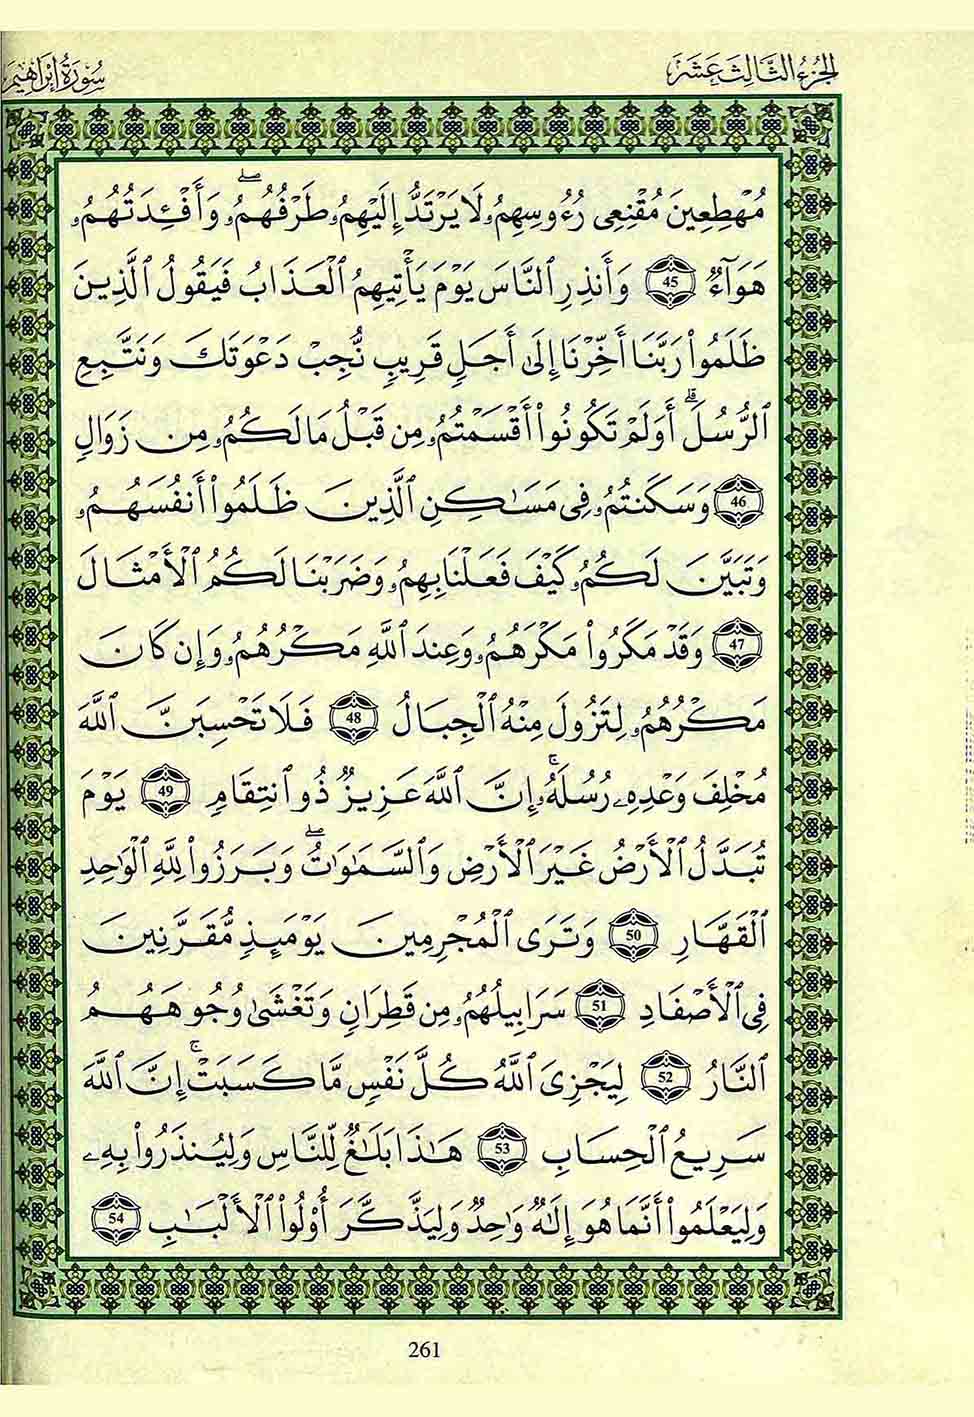 الجُزْءُ الثَّالِثَ عَشَرَ
سُورَةُ إِبْرَاهِيمَ
مُهْطِعِينَ مُقْنِعِى رُءُوسِهِمُۥ لَا يَرْتَدُّ إِلَيْهِمُۥ طَرْفُهُمُۥۖ وَأَفْـِٔدَتُهُمُۥ
هَوَآءٌ 45 وَأَنذِرِ اِ۬لنَّاسَ يَوْمَ يَأْتِيهِمُ اُ۬لْعَذَابُ فَيَقُولُ اُ۬لَّذِينَ
ظَلَمُواْ رَبَّنَا أَخِّرْنَا إِلَىٰ أَجَلٍ قَرِيبٍ نُّجِبْ دَعْوَتَكَ وَنَتَّبِعِ
اِ۬لرُّسُلَۗ أَوَلَمْ تَكُونُواْ أَقْسَمْتُمُۥ مِن قَبْلُ مَا لَكُمُۥ مِن زَوَالٍ
46 وَسَكَنتُمُۥ فِى مَسَٰكِنِ اِ۬لَّذِينَ ظَلَمُواْ أَنفُسَهُمُۥ
وَتَبَيَّنَ لَكُمُۥ كَيْفَ فَعَلْنَا بِهِمُۥ وَضَرَبْنَا لَكُمُ اُ۬لْأَمْثَالَ
47 وَقَدْ مَكَرُواْ مَكْرَهُمُۥ وَعِندَ اَ۬للَّهِ مَكْرُهُمُۥ وَإِن كَانَ
مَكْرُهُمُۥ لِتَزُولَ مِنْهُ اُ۬لْجِبَالُ 48 فَلَا تَحْسِبَنَّ اَ۬للَّهَ
مُخْلِفَ وَعْدِهِۦ رُسُلَهُۥۚ إِنَّ اَ۬للَّهَ عَزِيزٌ ذُو اُ۪نتِقَامٍ 49 يَوْمَ
تُبَدَّلُ اُ۬لْأَرْضُ غَيْرَ اَ۬لْأَرْضِ وَالسَّمَٰوَٰتُۖ وَبَرَزُواْ لِلَّهِ اِ۬لْوَٰحِدِ
اِ۬لْقَهَّارِ 50 وَتَرَى اَ۬لْمُجْرِمِينَ يَوْمَئِذٍ مُّقَرَّنِينَ
فِى اِ۬لْأَصْفَادِ 51 سَرَابِيلُهُمُۥ مِن قَطِرَانٍ وَتَغْشَىٰ وُجُوهَهُمُ
اُ۬لنَّارُ 52 لِيَجْزِىَ اَ۬للَّهُ كُلَّ نَفْسٍ مَّا كَسَبَتْۚ إِنَّ اَ۬للَّهَ
سَرِيعُ اُ۬لْحِسَابِ 53 هَٰذَا بَلَٰغٌ لِّلنَّاسِ وَلِيُنذَرُواْ بِهِۦ
وَلِيَعْلَمُواْ أَنَّمَا هُوَ إِلَٰهٌ وَٰحِدٌ وَلِيَذَّكَّرَ أُوْلُواْ اُ۬لْأَلْبَٰبِ 54
261